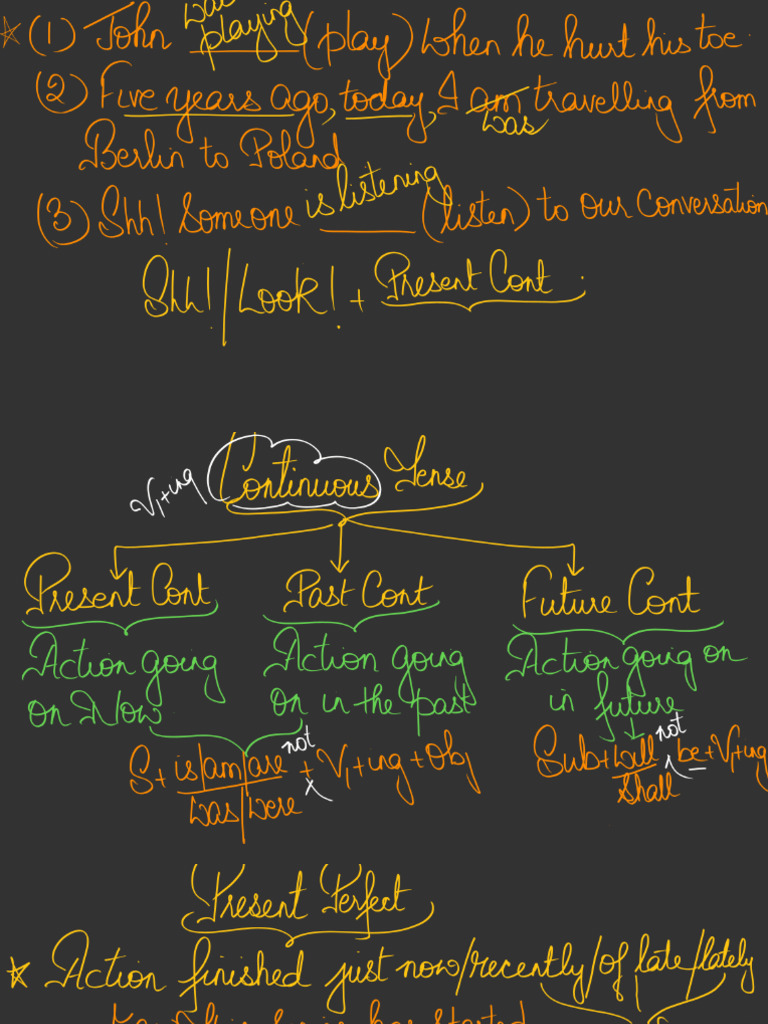 (1) John was playing (play) when he hurt his toe.
(2) Five years ago, today, I am travelling from
was
Berlin to Poland
(3) Shh! Someone is listening (listen) to our conversation
Shh! / Look! + Present Cont.
V1+ing Continuous Tense
Present Cont Past Cont Future Cont
Action going Action going Action going on
on Now on in the past in future
S+ is/am/are not + V1+ing+Obj Sub+will not be+V1+ing
was/were shall
Present Perfect
Action finished just now/recently/of late/lately
has started